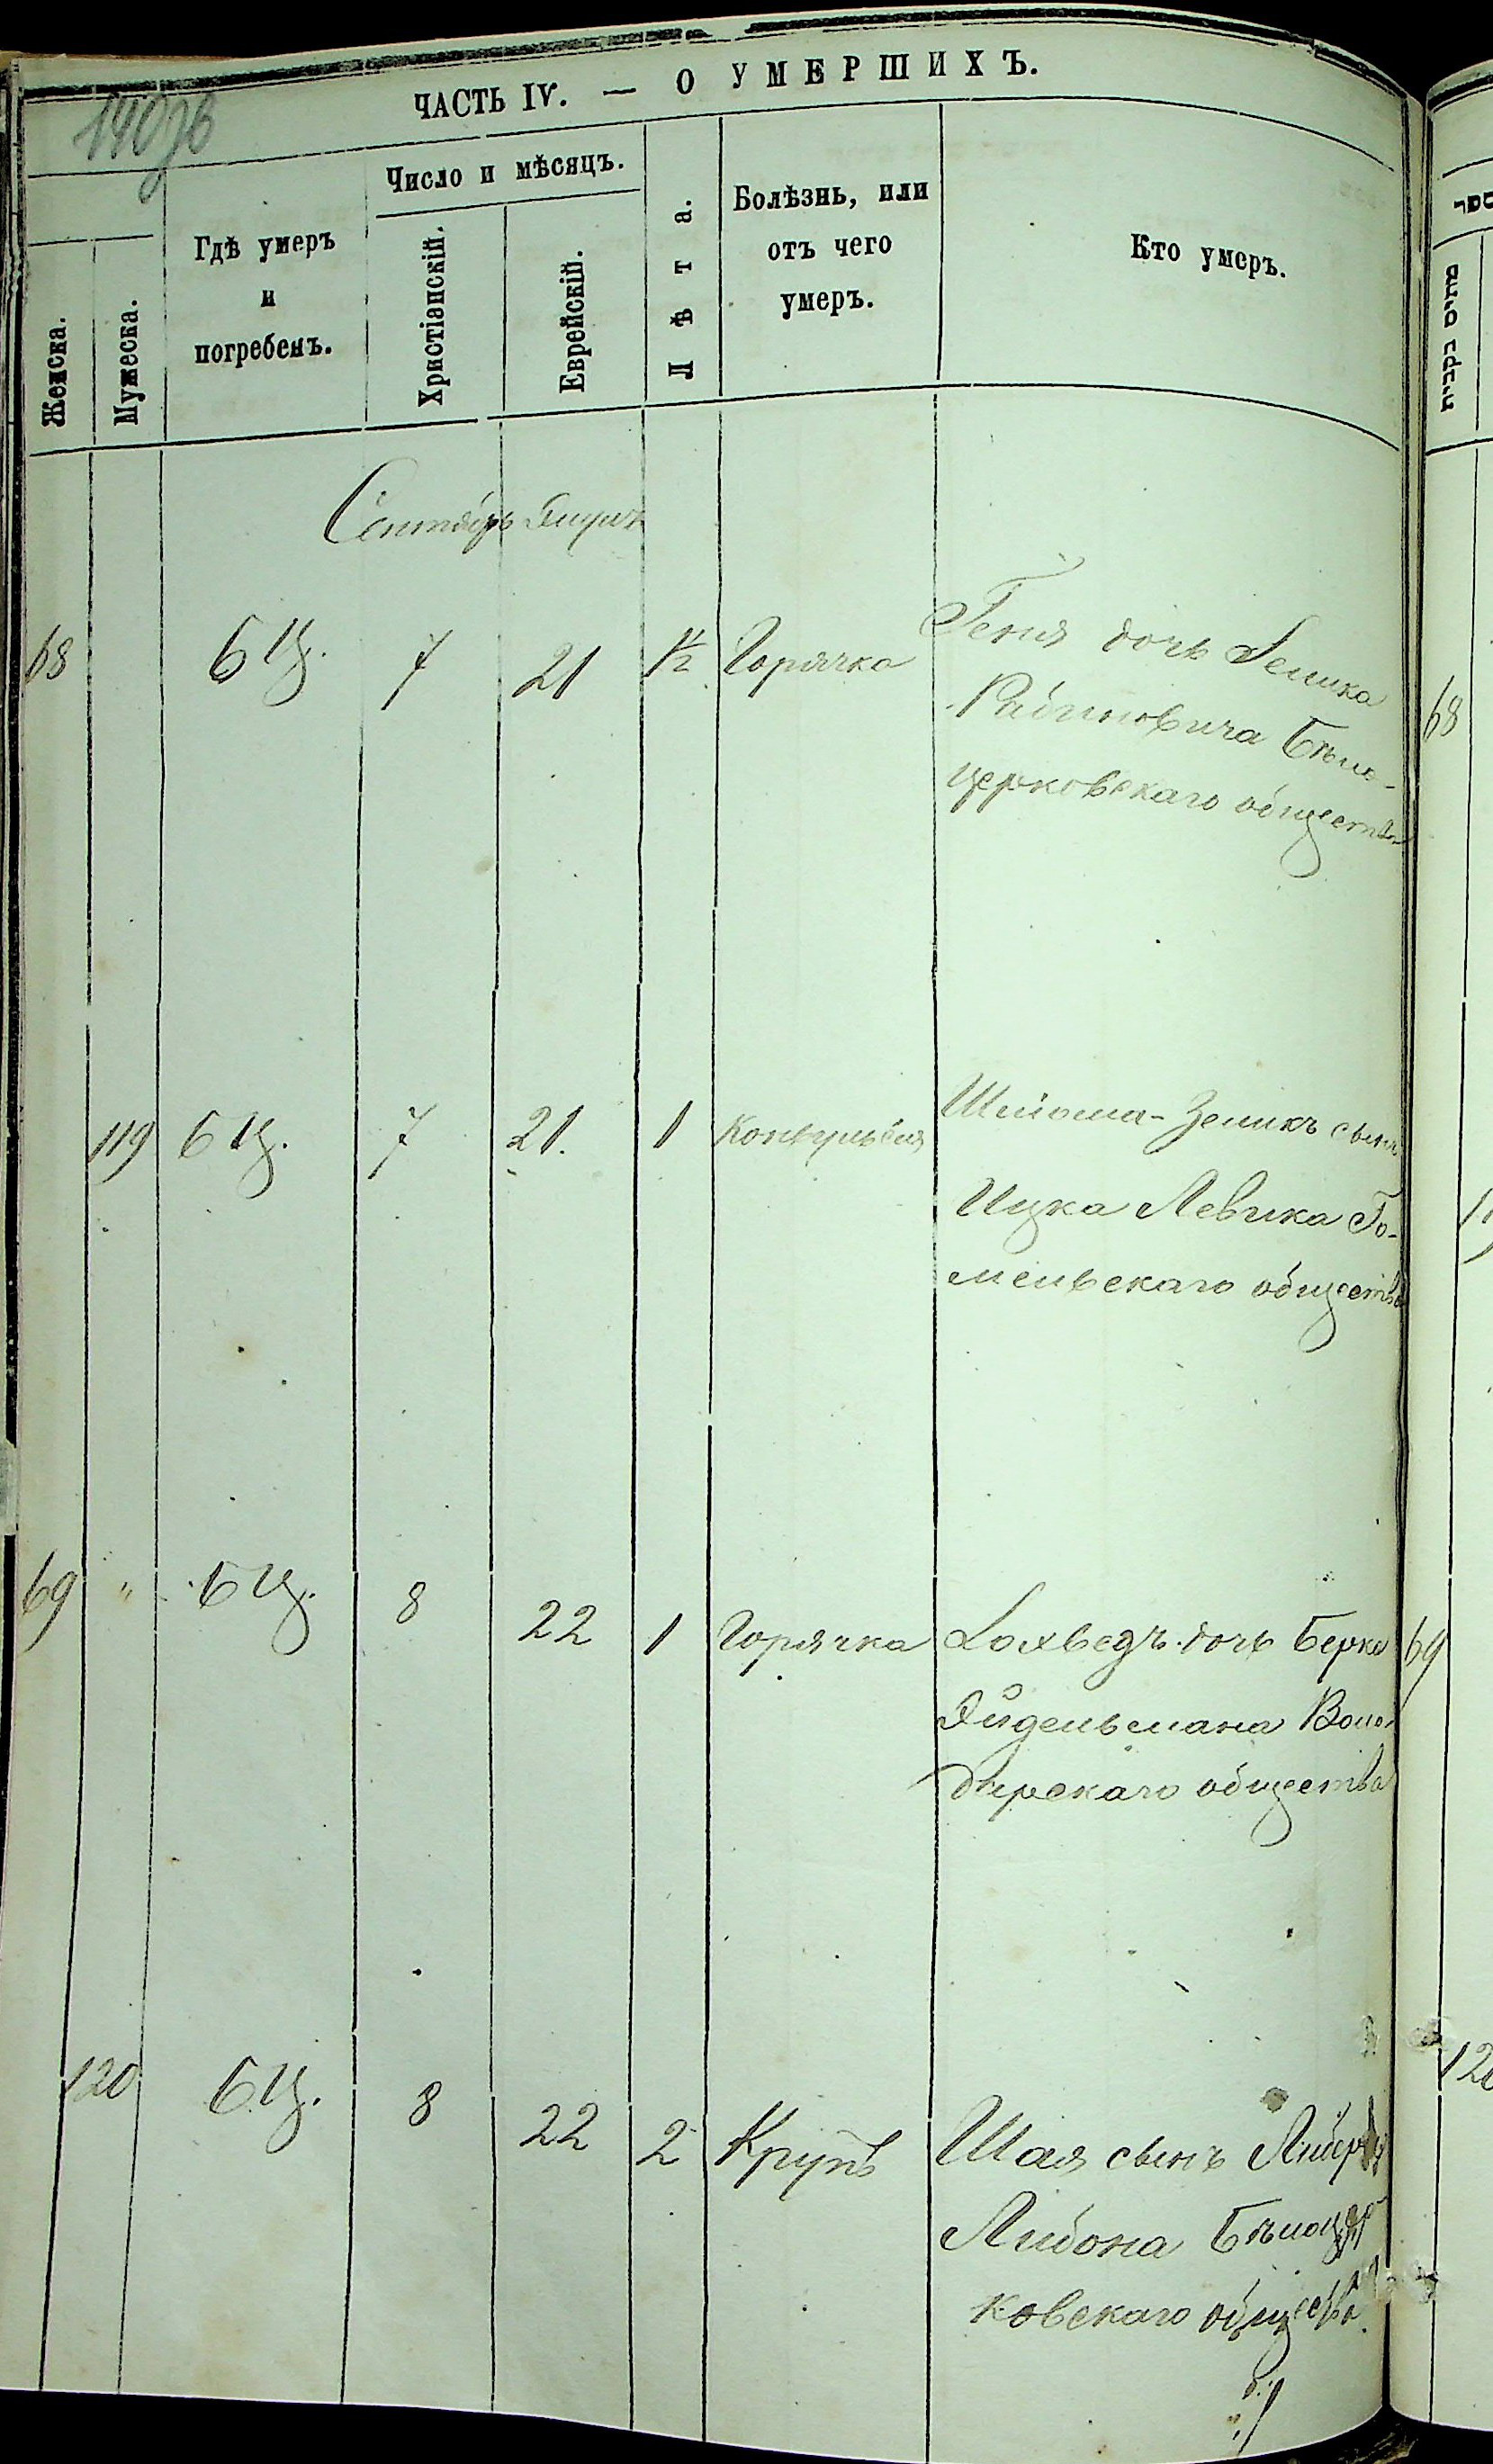 140об
ЧАСТЬ IV. — О УМЕРШИХЪ.
Женска.
Мужеска.
Гдѣ умеръ
и
погребенъ.
Число и мѣсяцъ.
Христіанскій.
Еврейскій.
Лѣта.
Болѣзнь, или
отъ чего
умеръ.
Кто умеръ.
Сентябрь
68 БЦ. 7 21 1½ Горячка
Геня дочь Земика
Рабиновича Бѣло-
церковскаго общества
68
119 БЦ. 7 21. 1 Конвульсія
Шлйома-Зеликъ сынъ
Ицка Левика Го-
мельскаго общества
69 " БЦ. 8 22 1 Горячка
Дохведъ дочь Берка
Эйдельмана Воло-
дарскаго общества
69
120 БЦ. 8 22 2 Крупъ
Шая сынъ
Либона Бѣлоцер
ковскаго общества
120
מתים נקבות